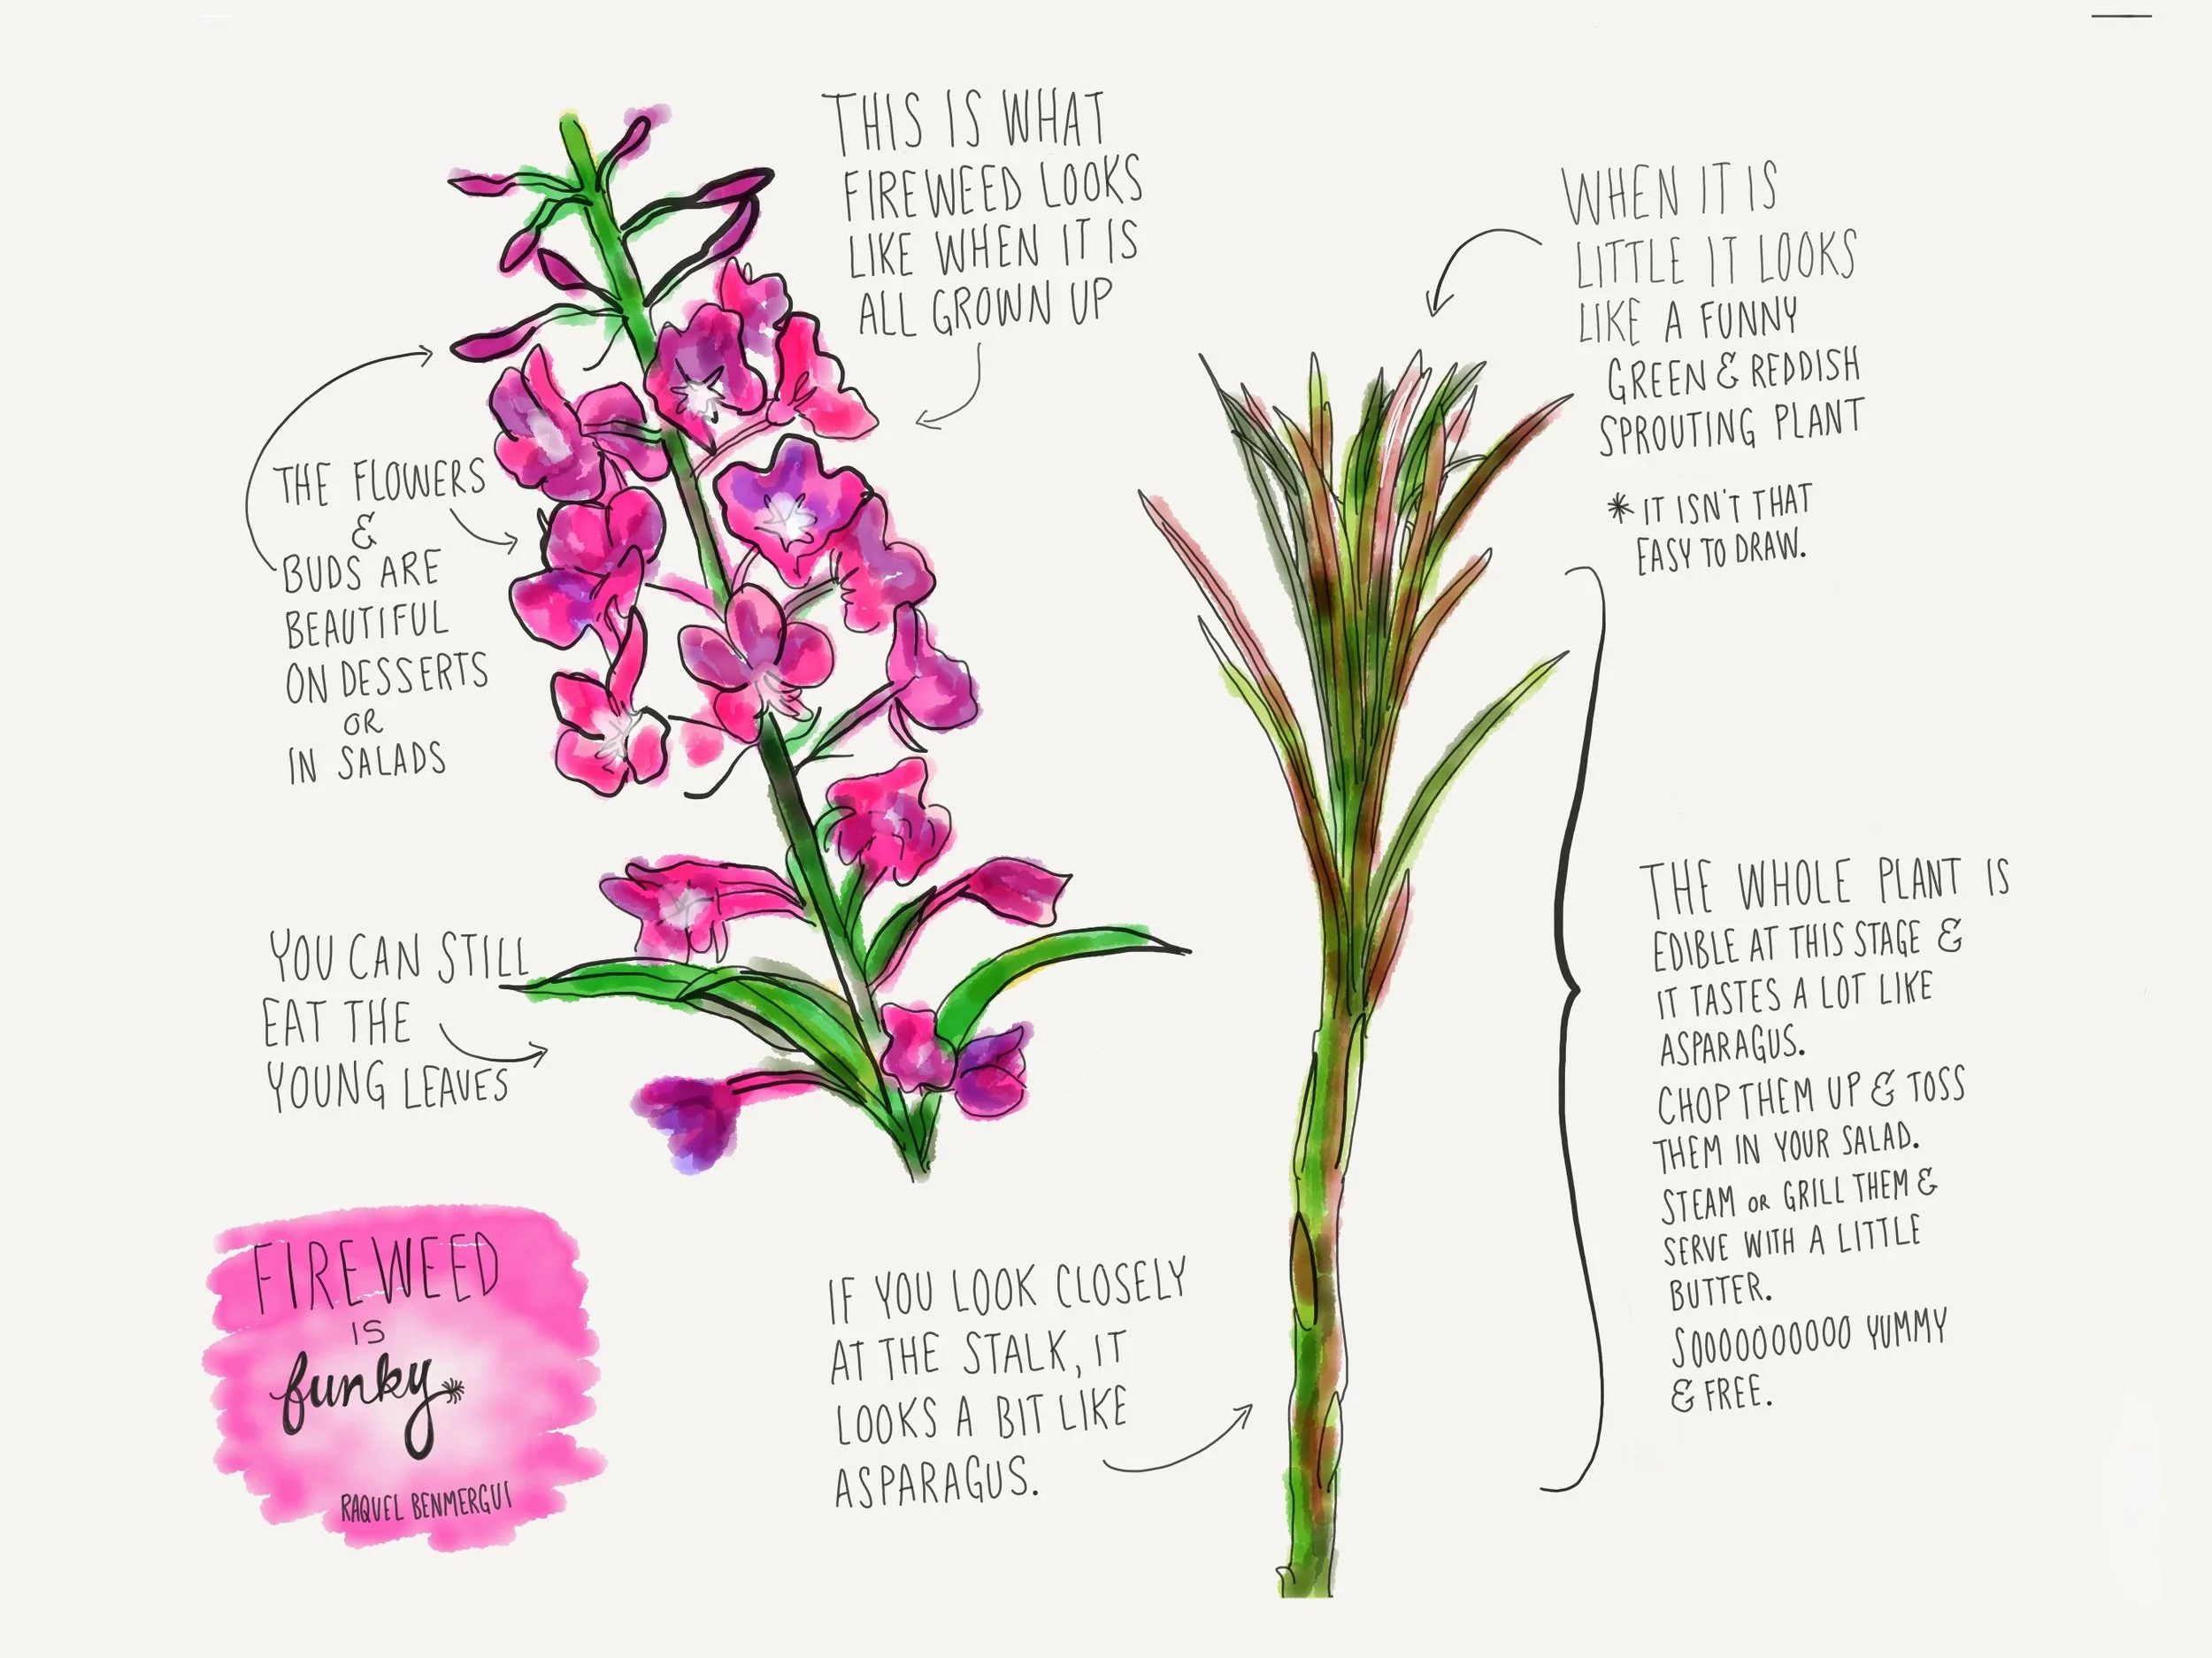 THIS IS WHAT
FIREWEED LOOKS
LIKE WHEN IT IS
ALL GROWN UP
WHEN IT IS
LITTLE IT LOOKS
LIKE A FUNNY
GREEN & REDDISH
SPROUTING PLANT
* IT ISN'T THAT
EASY TO DRAW.
THE FLOWERS
&
BUDS ARE
BEAUTIFUL
ON DESSERTS
OR
IN SALADS
YOU CAN STILL
EAT THE
YOUNG LEAVES
THE WHOLE PLANT IS
EDIBLE AT THIS STAGE &
IT TASTES A LOT LIKE
ASPARAGUS.
CHOP THEM UP & TOSS
THEM IN YOUR SALAD.
STEAM OR GRILL THEM &
SERVE WITH A LITTLE
BUTTER.
SOOOOOOOOOO YUMMY
& FREE.
IF YOU LOOK CLOSELY
AT THE STALK, IT
LOOKS A BIT LIKE
ASPARAGUS.
FIREWEED
IS
funky*
RAQUEL BENMERGUI